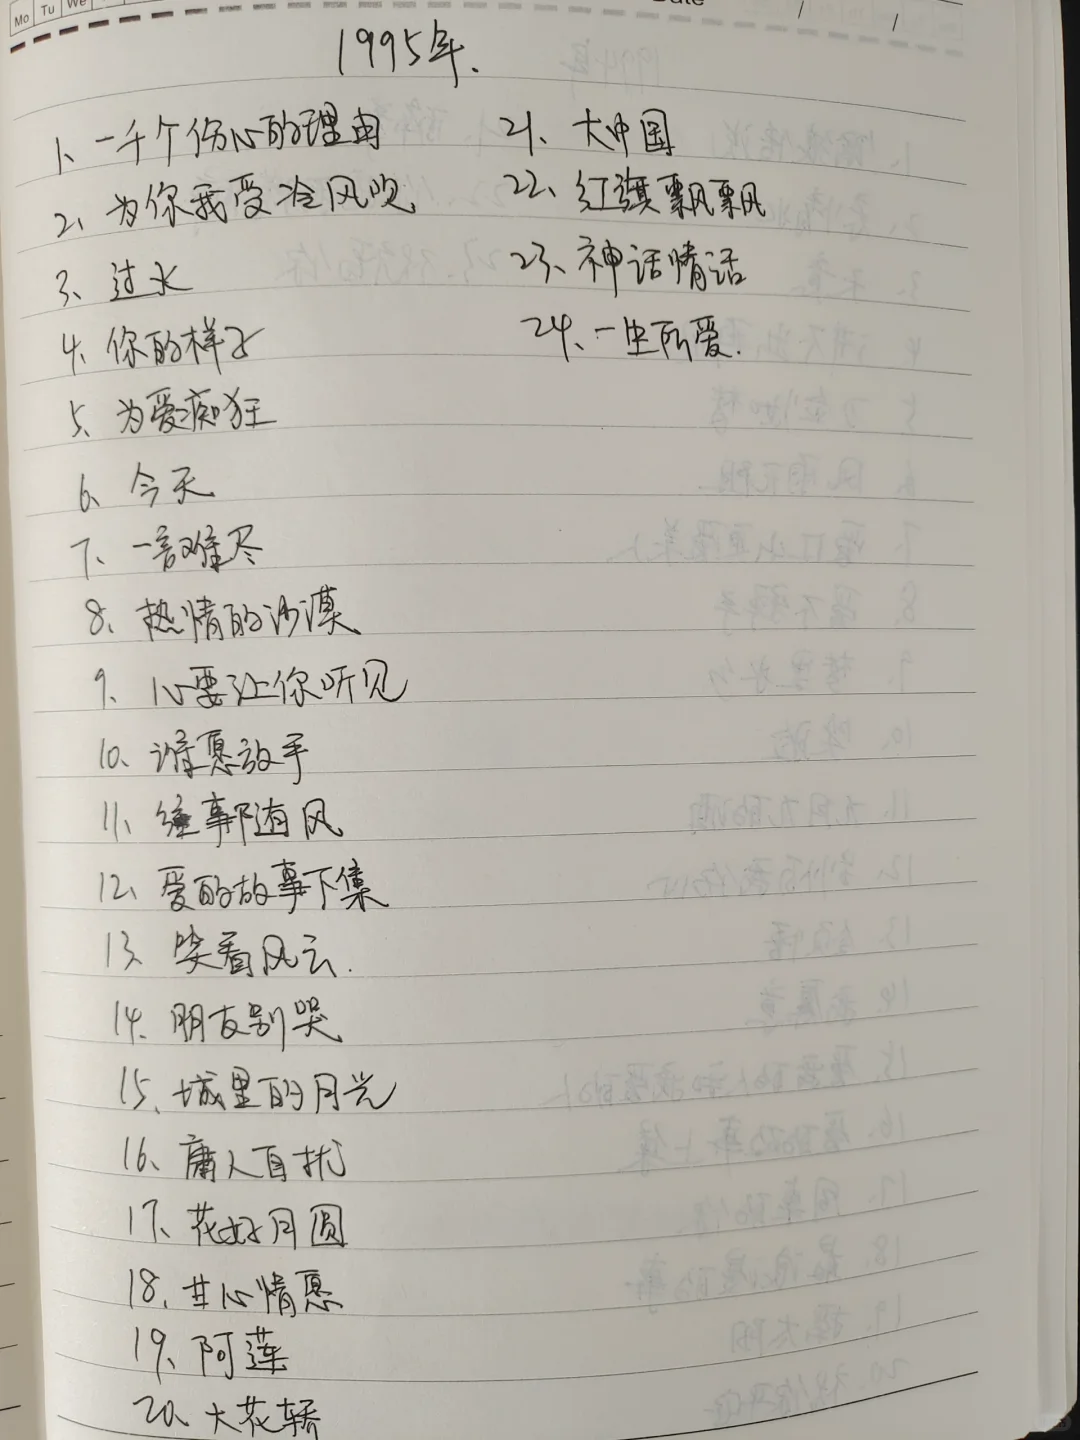 Mo Tu We
Date / /
1995年.
1、一千个伤心的理由
2、为你我受冷风吹
3、过火
4、你的样子
5、为爱痴狂
6、今天
7、一言难尽
8、热情的沙漠
9、心要让你听见
10、谁愿放手
11、往事随风
12、爱的故事下集
13、笑看风云.
14、朋友别哭
15、城里的月光
16、庸人自扰
17、花好月圆
18、甘心情愿
19、阿莲
20、大花轿
21、大中国
22、红旗飘飘
23、神话情话
24、一生所爱.